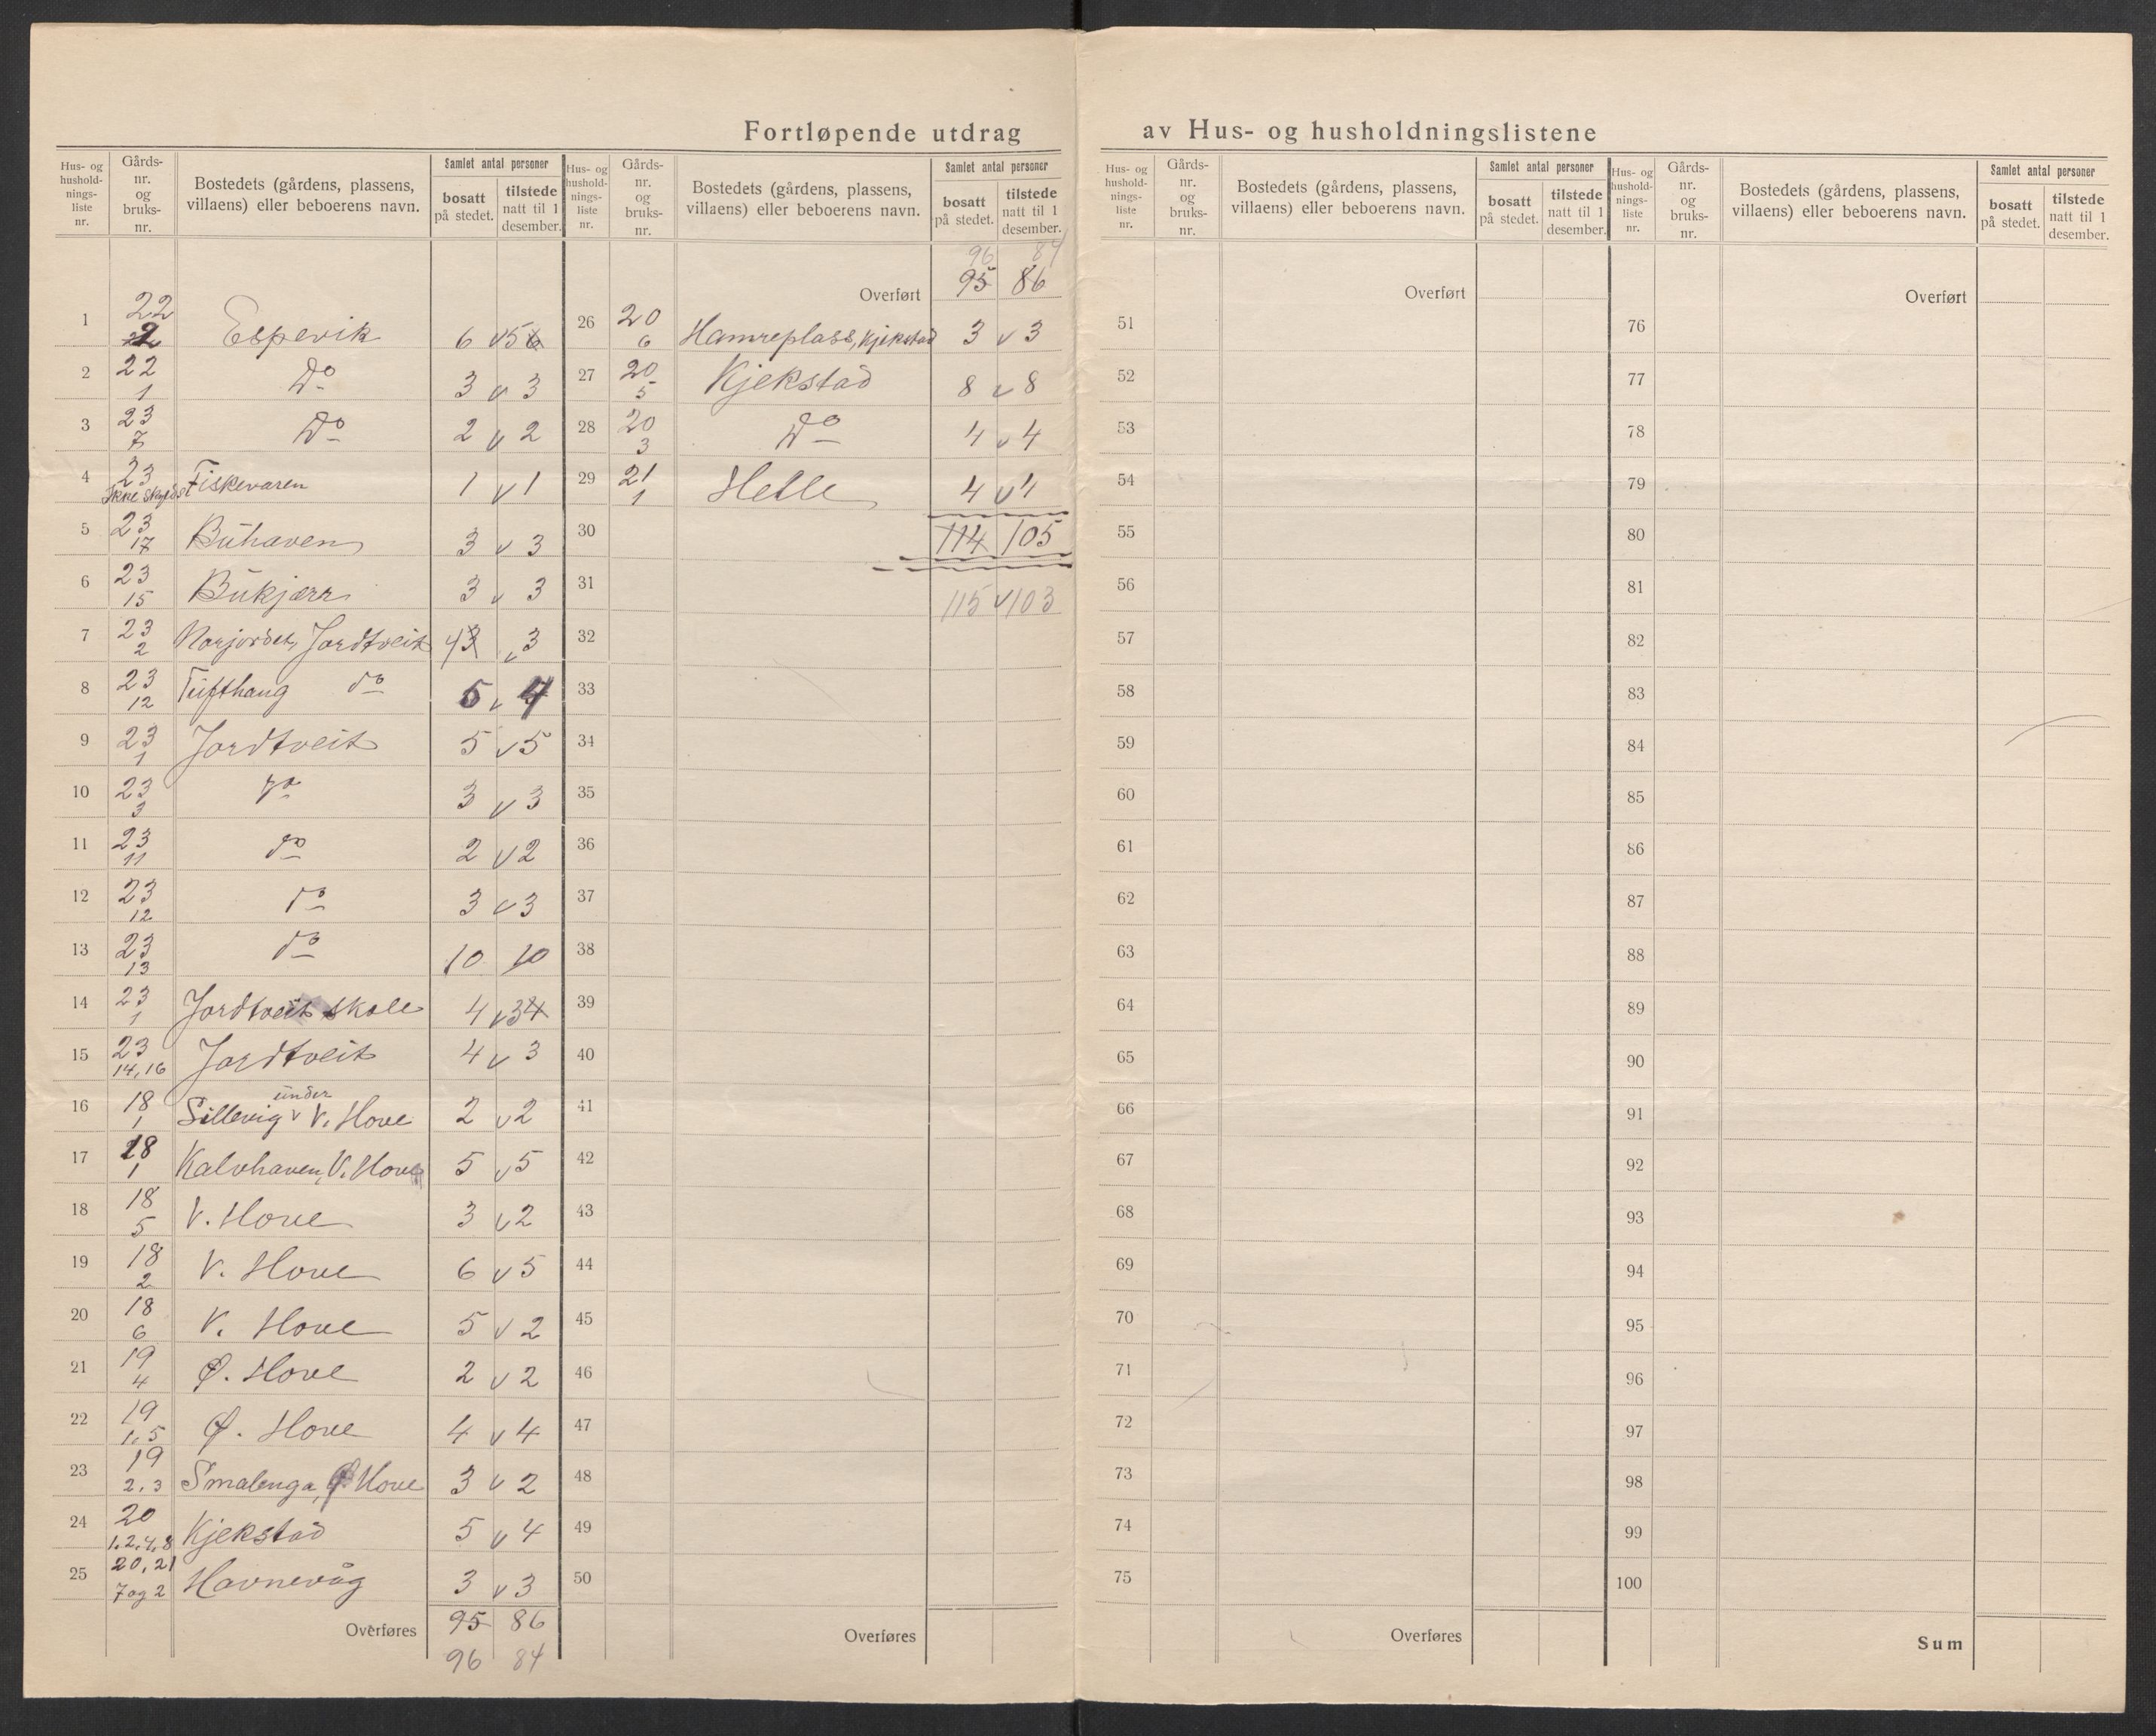 Fortløpende utdrag av Hus- og husholdningslistene
Hus- og husholdningsliste nr. | Gårdsnr. og bruksnr. | Bostedets (gårdens, plassens, villaens) eller beboerens navn. | Samlet antal personer | bosatt på stedet. | tilstede natt til 1 desember.
1 | 22 | Espevik | 6 v 5 6
2 | 22 1 | Do | 3 v 3
3 | 23 7 | Do | 2 v 2
4 | 23 Ikke skyldsat | Fiskevaren | 1 v 1
5 | 23 17 | Buhaven | 3 v 3
6 | 23 15 | Bukjærr | 3 v 3
7 | 23 2 | Norjordet, Jordtveit | 4 3 v 3
8 | 23 12 | Tufthaug do | 5 v 4
9 | 23 1 | Jordtveit | 5 v 5
10 | 23 3 | do | 3 v 3
11 | 23 11 | do | 2 v 2
12 | 23 12 | do | 3 v 3
13 | 23 13 | do | 10 10
14 | 23 1 | Jordtveit skole | 4 v 3 4
15 | 23 14, 16 | Jordtveit | 4 v 3
16 | 18 1 | Sillevig under V. Hove | 2 v 2
17 | 18 1 | Kalvhaven, V. Hove | 5 v 5
18 | 18 5 | V. Hove | 3 v 2
19 | 18 2 | V. Hove | 6 v 5
20 | 18 6 | V. Hove | 5 v 2
21 | 19 4 | Ø. Hove | 2 v 2
22 | 19 1, 5 | Ø. Hove | 4 v 4
23 | 19 2, 3 | Smalenga, Ø. Hove | 3 v 2
24 | 20 1, 2, 4, 8 | Kjekstad | 5 v 4
25 | 20, 21 7 og 2 | Havnevåg | 3 v 3
Overføres 95 86
96 84
Hus- og husholdningsliste nr. | Gårdsnr. og bruksnr. | Bostedets (gårdens, plassens, villaens) eller beboerens navn. | Samlet antal personer | bosatt på stedet. | tilstede natt til 1 desember.
96 84
Overført 95 86
26 | 20 6 | Hamreplass, Kjekstad | 3 v 3
27 | 20 5 | Kjekstad | 8 v 8
28 | 20 3 | Do | 4 v 4
29 | 21 1 | Helle | 4 v 4
30 | 114 105
31 | 115 v 103
32
33
34
35
36
37
38
39
40
41
42
43
44
45
46
47
48
49
50
Overføres
Hus- og husholdningsliste nr. | Gårdsnr. og bruksnr. | Bostedets (gårdens, plassens, villaens) eller beboerens navn. | Samlet antal personer | bosatt på stedet. | tilstede natt til 1 desember.
Overført
51
52
53
54
55
56
57
58
59
60
61
62
63
64
65
66
67
68
69
70
71
72
73
74
75
Overføres
Hus- og husholdningsliste nr. | Gårdsnr. og bruksnr. | Bostedets (gårdens, plassens, villaens) eller beboerens navn. | Samlet antal personer | bosatt på stedet. | tilstede natt til 1 desember.
Overført
76
77
78
79
80
81
82
83
84
85
86
87
88
89
90
91
92
93
94
95
96
97
98
99
100
Sum